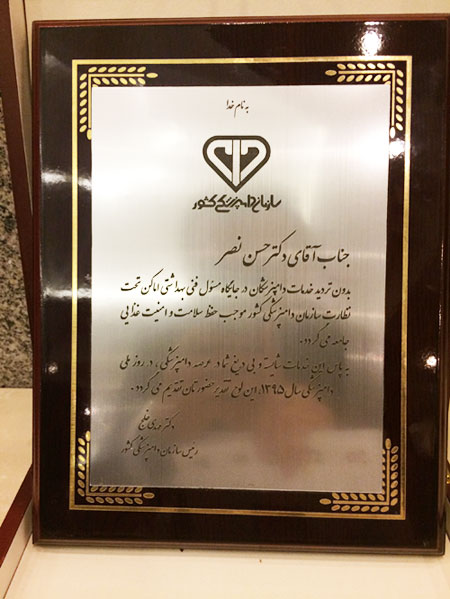 به نام خدا
سازمان دامپزشکی کشور
جناب آقای دکتر حسن نصر
بدون تردید خدمات دامپزشکان در جایگاه مسئول فنی بهداشتی اماکن تحت
نظارت سازمان دامپزشکی کشور موجب حفظ سلامت و امنیت غذایی
جامعه می گردد.
به پاس این خدمات شایسته و بی دریغ شما در عرصه دامپزشکی، در روز ملی
دامپزشکی سال ۱۳۹۵، این لوح تقدیر حضورتان تقدیم می گردد.
دکتر مهدی خلج
رئیس سازمان دامپزشکی کشور